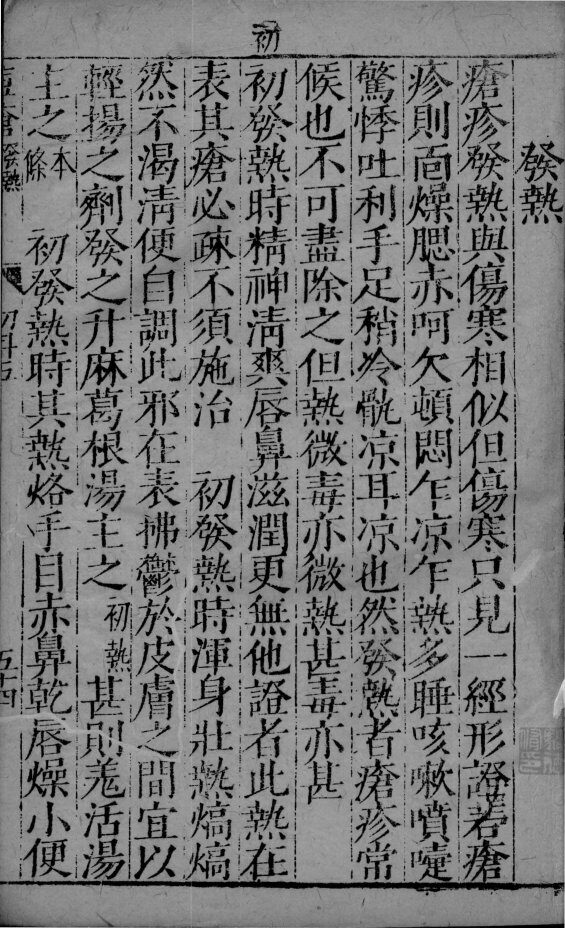 初
發熱
瘡疹發熱與傷寒相似但傷寒只見一經形證若瘡
疹則面燥腮赤呵欠頓悶乍凉乍熱多睡咳嗽噴嚏
驚悸吐利手足稍冷骩凉耳凉也然發熱者瘡疹常
候也不可盡除之但熱微毒亦微熱甚毒亦甚
初發熱時精神清爽唇鼻滋潤更無他證者此熱在
表其瘡必疎不須施治　初發熱時渾身壯熱熇熇
然不渴清便自調此邪在表怫鬱於皮膚之間宜以
輕揚之劑發之升麻葛根湯主之初熱甚則羗活湯
主之本條　初發熱時其熱烙手目赤鼻乾唇燥小便
痘瘡發熱　五十四